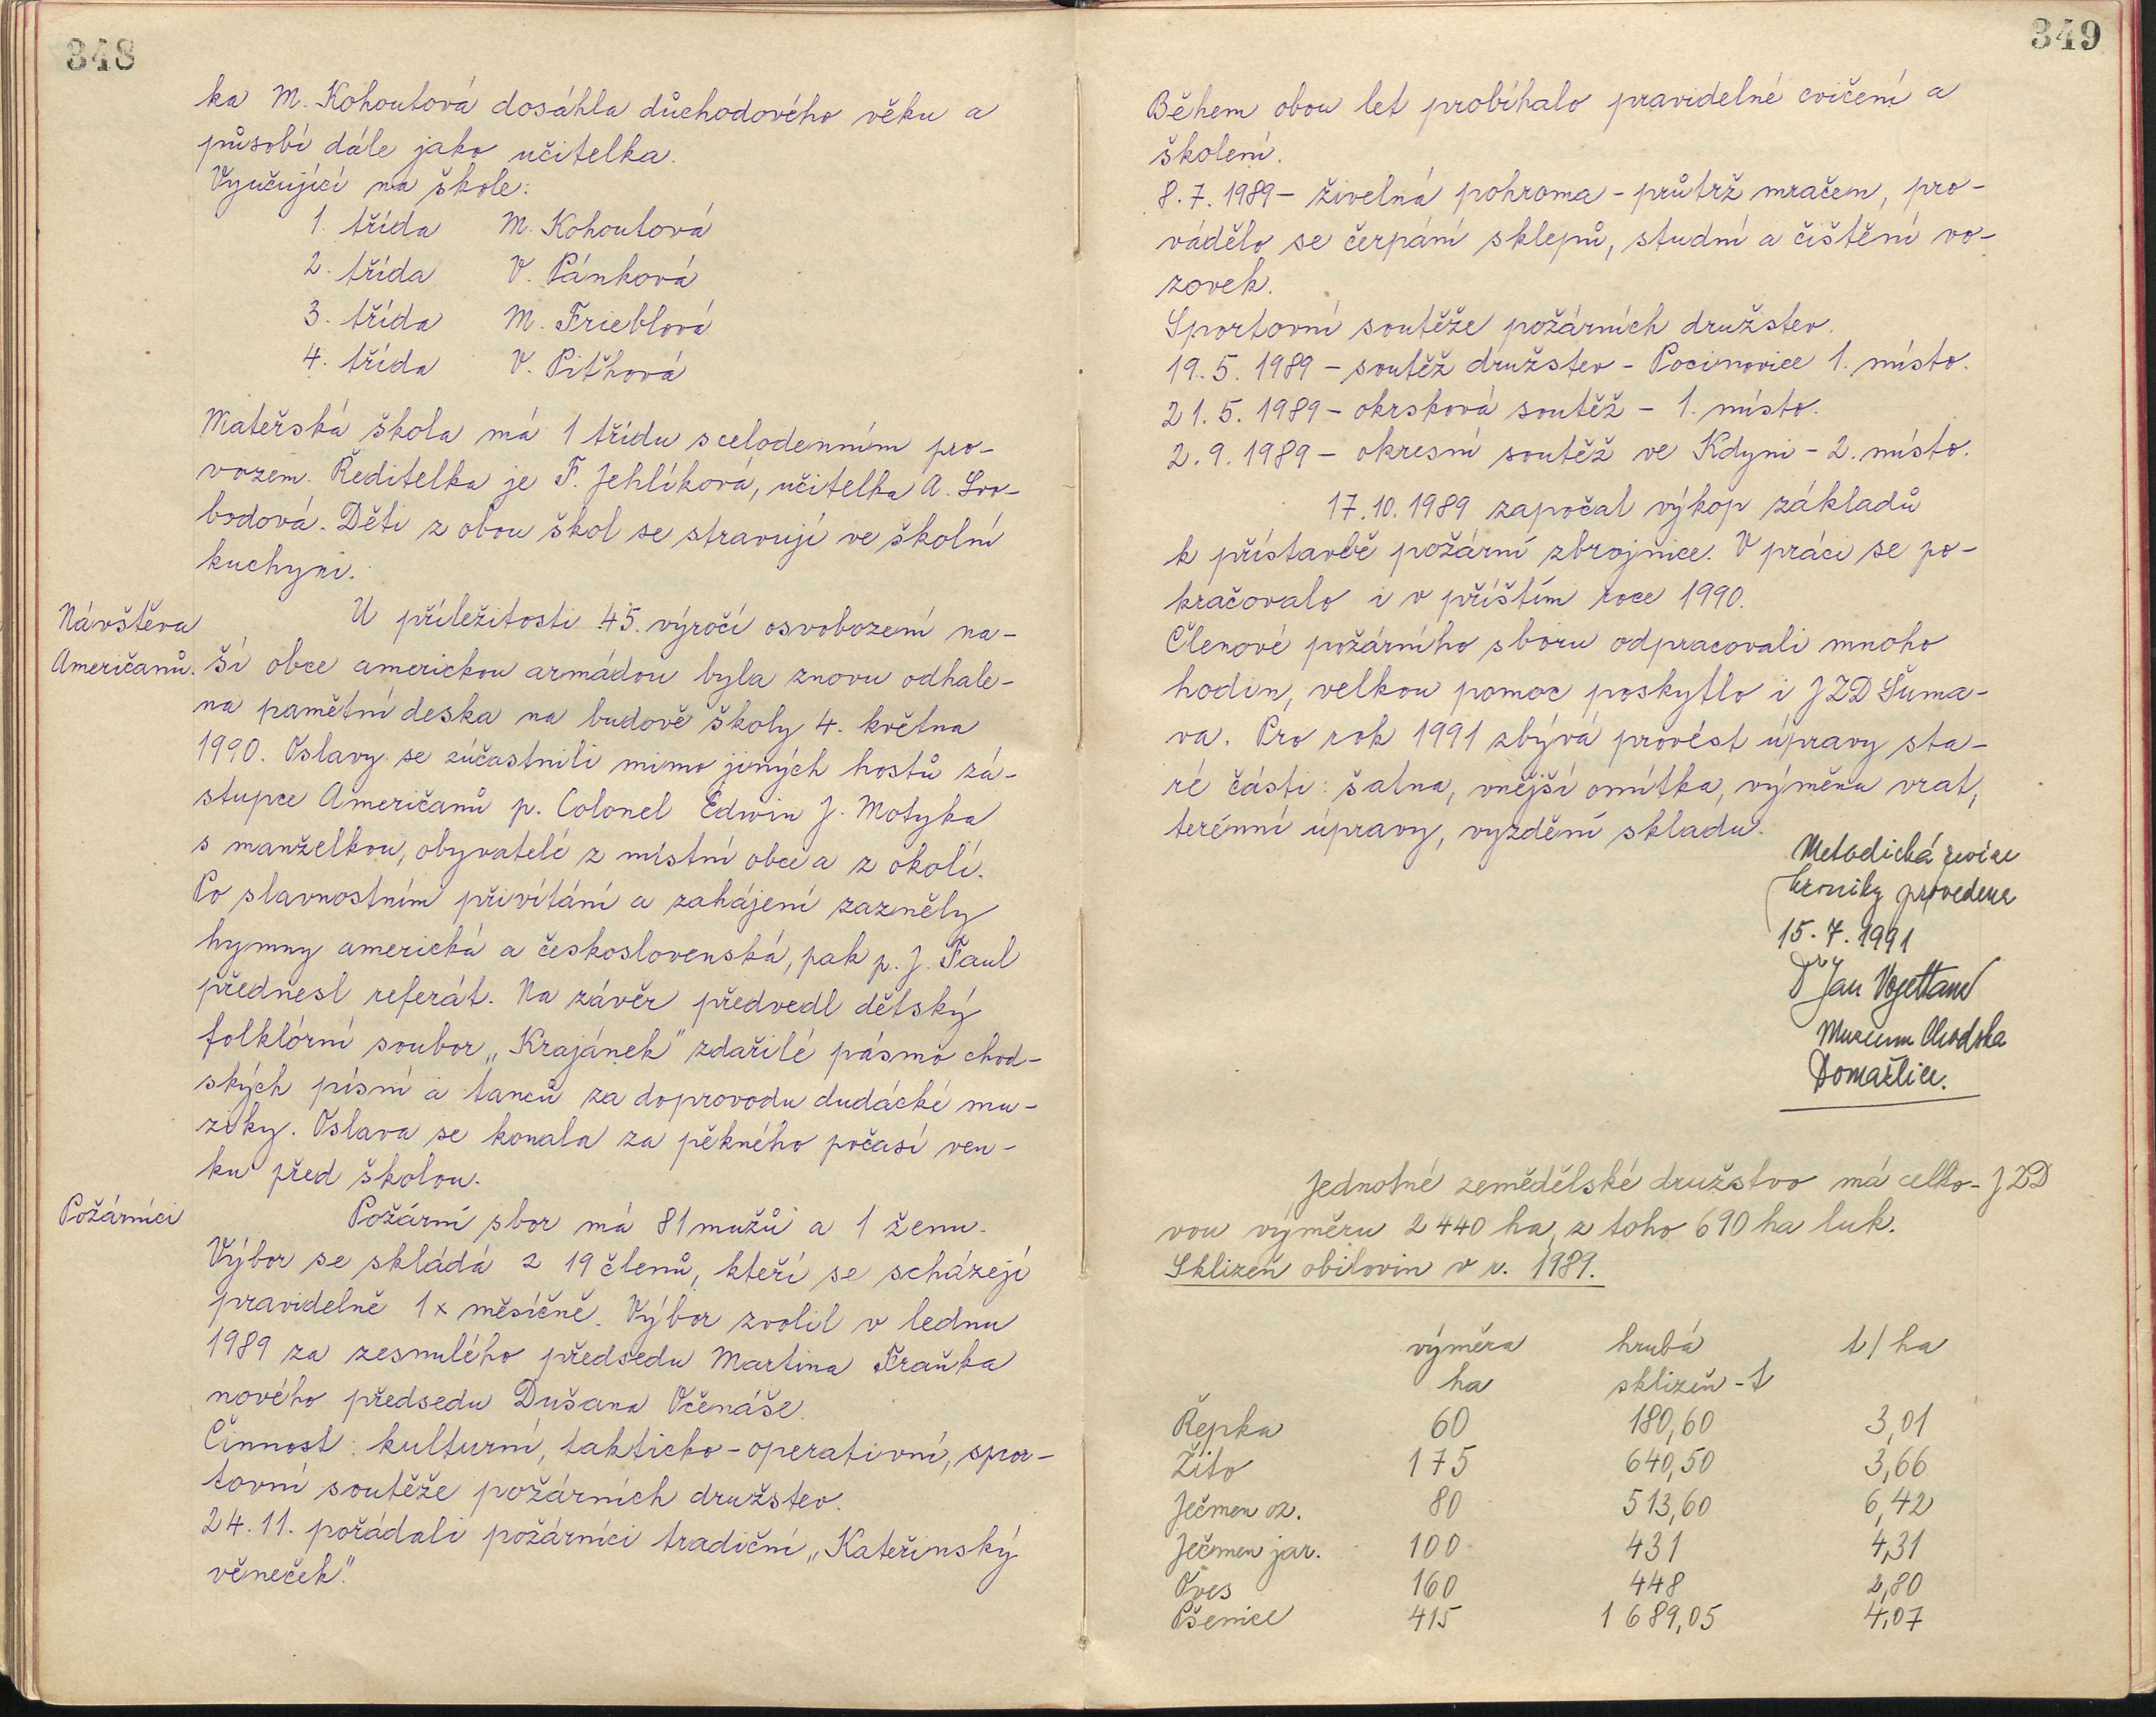 348
ka M. Kohoutová dosáhla důchodového věku a
působí dále jako učitelka.
Vyučující na škole:
1. třída M. Kohoutová
2. třída V. Pánková
3. třída M. Frieblová
4. třída V. Pithová
Mateřská škola má 1 třídu s celodenním pro-
vozem. Ředitelka je F. Jehlíková, učitelka A. Svo-
bodová. Děti z obou škol se stravují ve školní
kuchyni.
Návštěva
Američanů.
U příležitosti 45. výročí osvobození na-
ší obce americkou armádou byla znovu odhale-
na pamětní deska na budově školy 4. května
1990. Oslavy se zúčastnili mimo jiných hostů zá-
stupce Američanů p. Colonel Edwin J. Motyka
s manželkou, obyvatelé z místní obce a z okolí.
Po slavnostním přivítání a zahájení zazněly
hymny americká a československá, pak p. J. Faul
přednesl referát. Na závěr předvedl dětský
folklórní soubor „Krajánek" zdařilé pásmo chod-
ských písní a tanců za doprovodu dudácké mu-
ziky. Oslava se konala za pěkného počasí ven-
ku před školou.
Požárníci
Požární sbor má 81 mužů a 1 ženu.
Výbor se skládá z 19 členů, kteří se scházejí
pravidelně 1x měsíčně. Výbor zvolil v lednu
1989 za zesnulého předsedu Martina Fraňka
nového předsedu Dušana Očenáše.
Činnost: kulturní, takticko-operativní, spor-
tovní soutěže požárních družstev.
24.11. pořádali požárníci tradiční „Kateřinský
věneček".
349
Během obou let probíhalo pravidelné cvičení a
školení.
8.7.1989 - živelná pohroma - průtrž mračen, pro-
vádělo se čerpání sklepů, studní a čištění vo-
zovek.
Sportovní soutěže požárních družstev.
19.5.1989 - soutěž družstev - Pocinovice 1. místo.
21.5.1989 - okrsková soutěž - 1. místo.
2.9.1989 - okresní soutěž ve Kdyni - 2. místo.
17.10.1989 započal výkop základů
k přístavbě požární zbrojnice. V práci se po-
kračovalo i v příštím roce 1990.
Členové požárního sboru odpracovali mnoho
hodin, velkou pomoc poskytlo i JZD Šuma-
va. Pro rok 1991 zbývá provést úpravy sta-
ré části: šatna, vnější omítka, výměna vrat,
terénní úpravy, vyzdění skladu.
Metodická revize
kroniky provedena
15.7.1991
Dr Jan
Muzeum Chodska
Domažlice.
Jednotné zemědělské družstvo má celko- JZD
vou výměru 2440 ha, z toho 690 ha luk.
Sklizeň obilovin v r. 1989.
výměra hrubá t/ha
ha sklizeň - t
Řepka 60 180,60 3,01
Žito 175 640,50 3,66
Ječmen oz. 80 513,60 6,42
Ječmen jar. 100 431 4,31
Oves 160 448 2,80
Pšenice 415 1 689,05 4,07